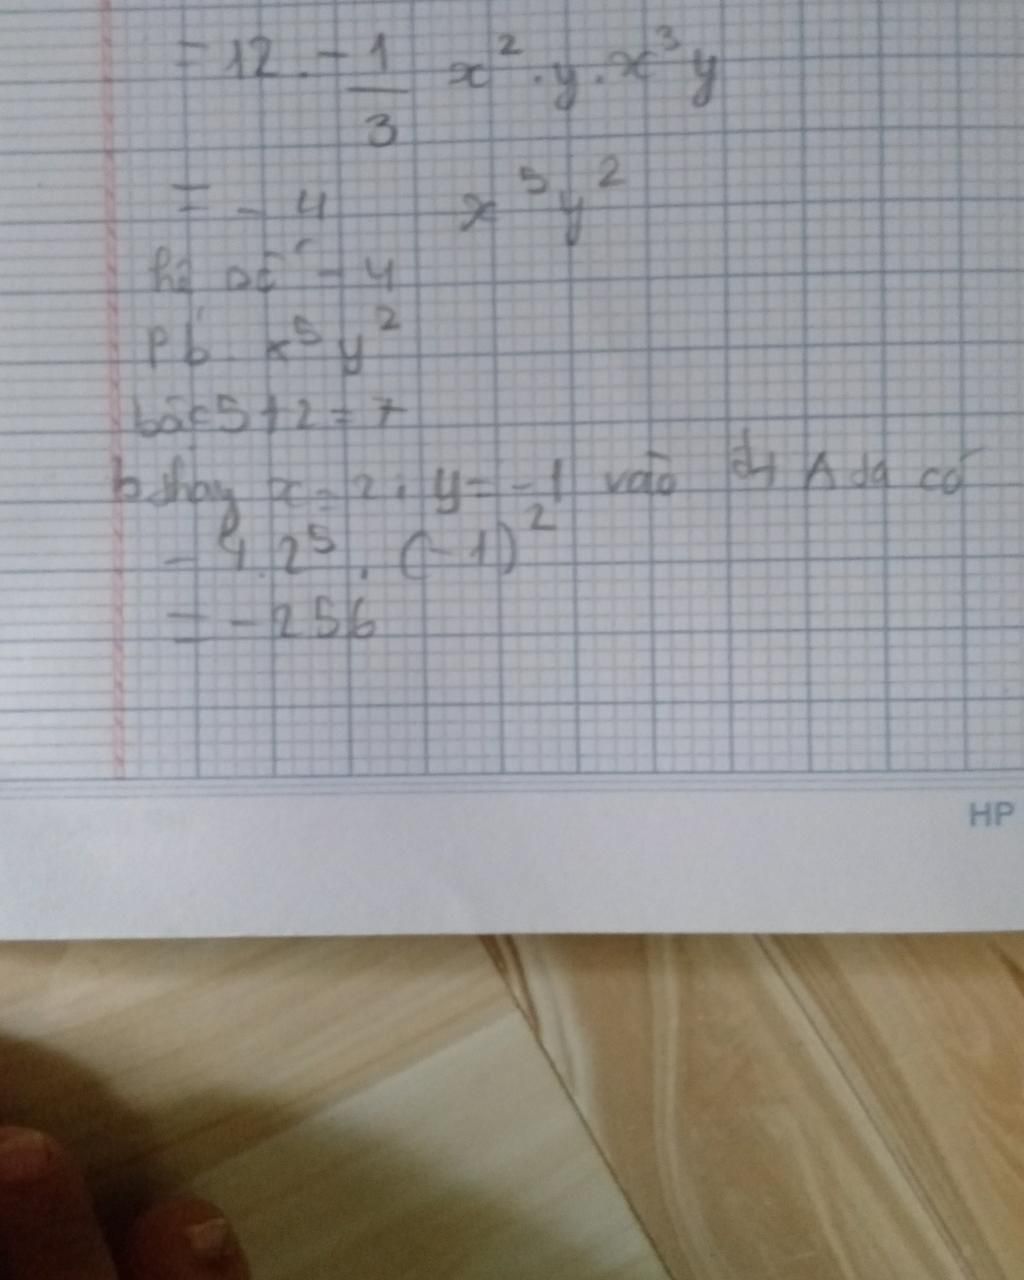 = 12 . - 1/3 x² . y . x³ y
= - 4 x⁵ y²
hệ số - 4
Pb x⁵ y²
bậc 5 + 2 = 7
b thay x = 2 , y = -1 vào A ta có
- 4 . 2⁵ . (-1)²
= - 256
HP